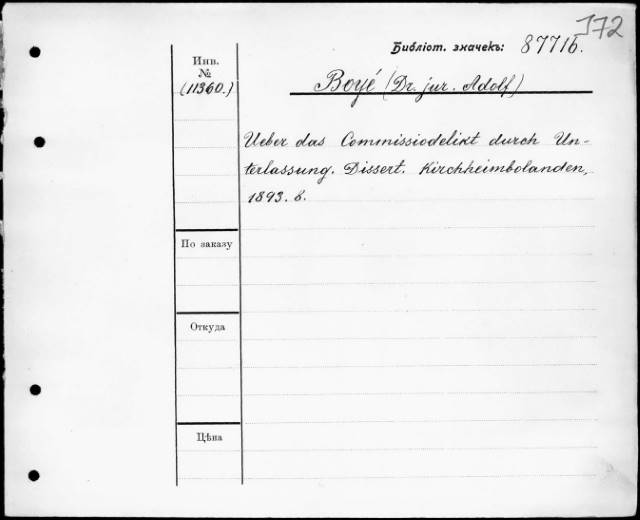 I72
Библіот. значекъ: 87716.
Инв.
№
(11360.)
Boyé (Dr. jur. Adolf)
Ueber das Commissiodelikt durch Un-
terlassung. Dissert. Kirchheimbolanden,
1893. 8.
По заказу
Откуда
Цѣна